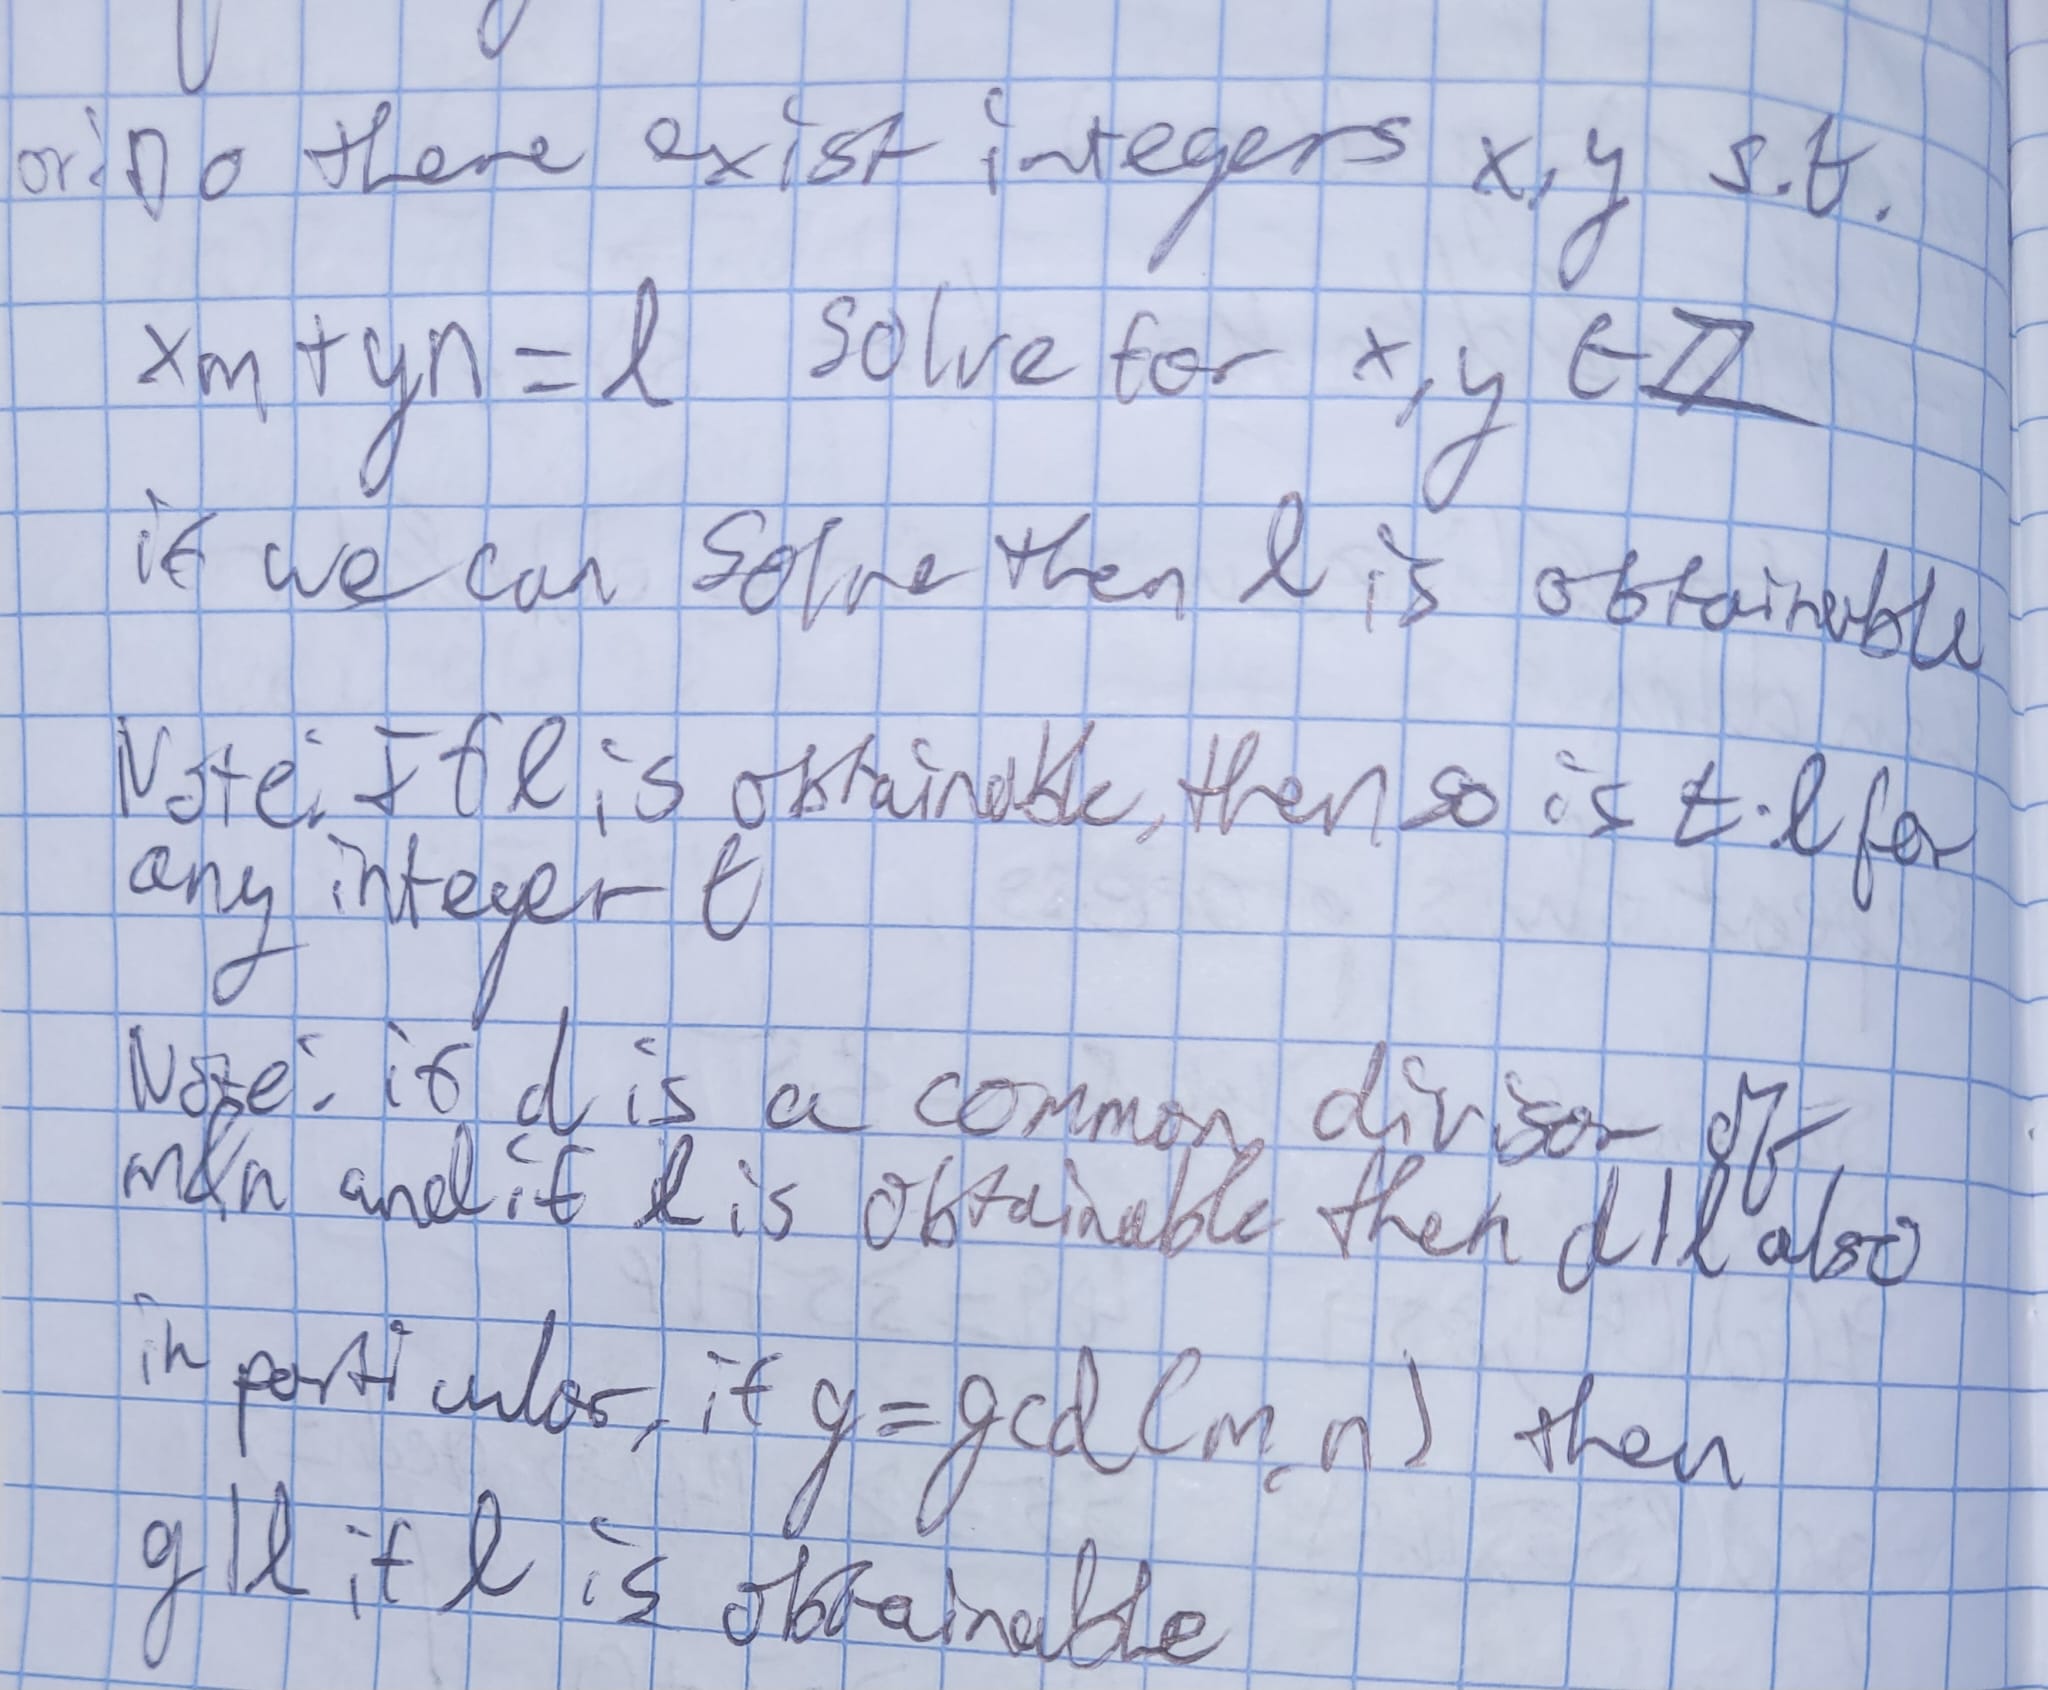 or: Do there exist integers x, y s.t.
xm + yn = l solve for x, y ∈ ℤ
if we can solve then l is obtainable
Note: If l is obtainable, then so is t·l for
any integer t
Note: if d is a common divisor of
m&n and if l is obtainable then d|l also
in particular, if g = gcd(m, n) then
g|l if l is obtainable